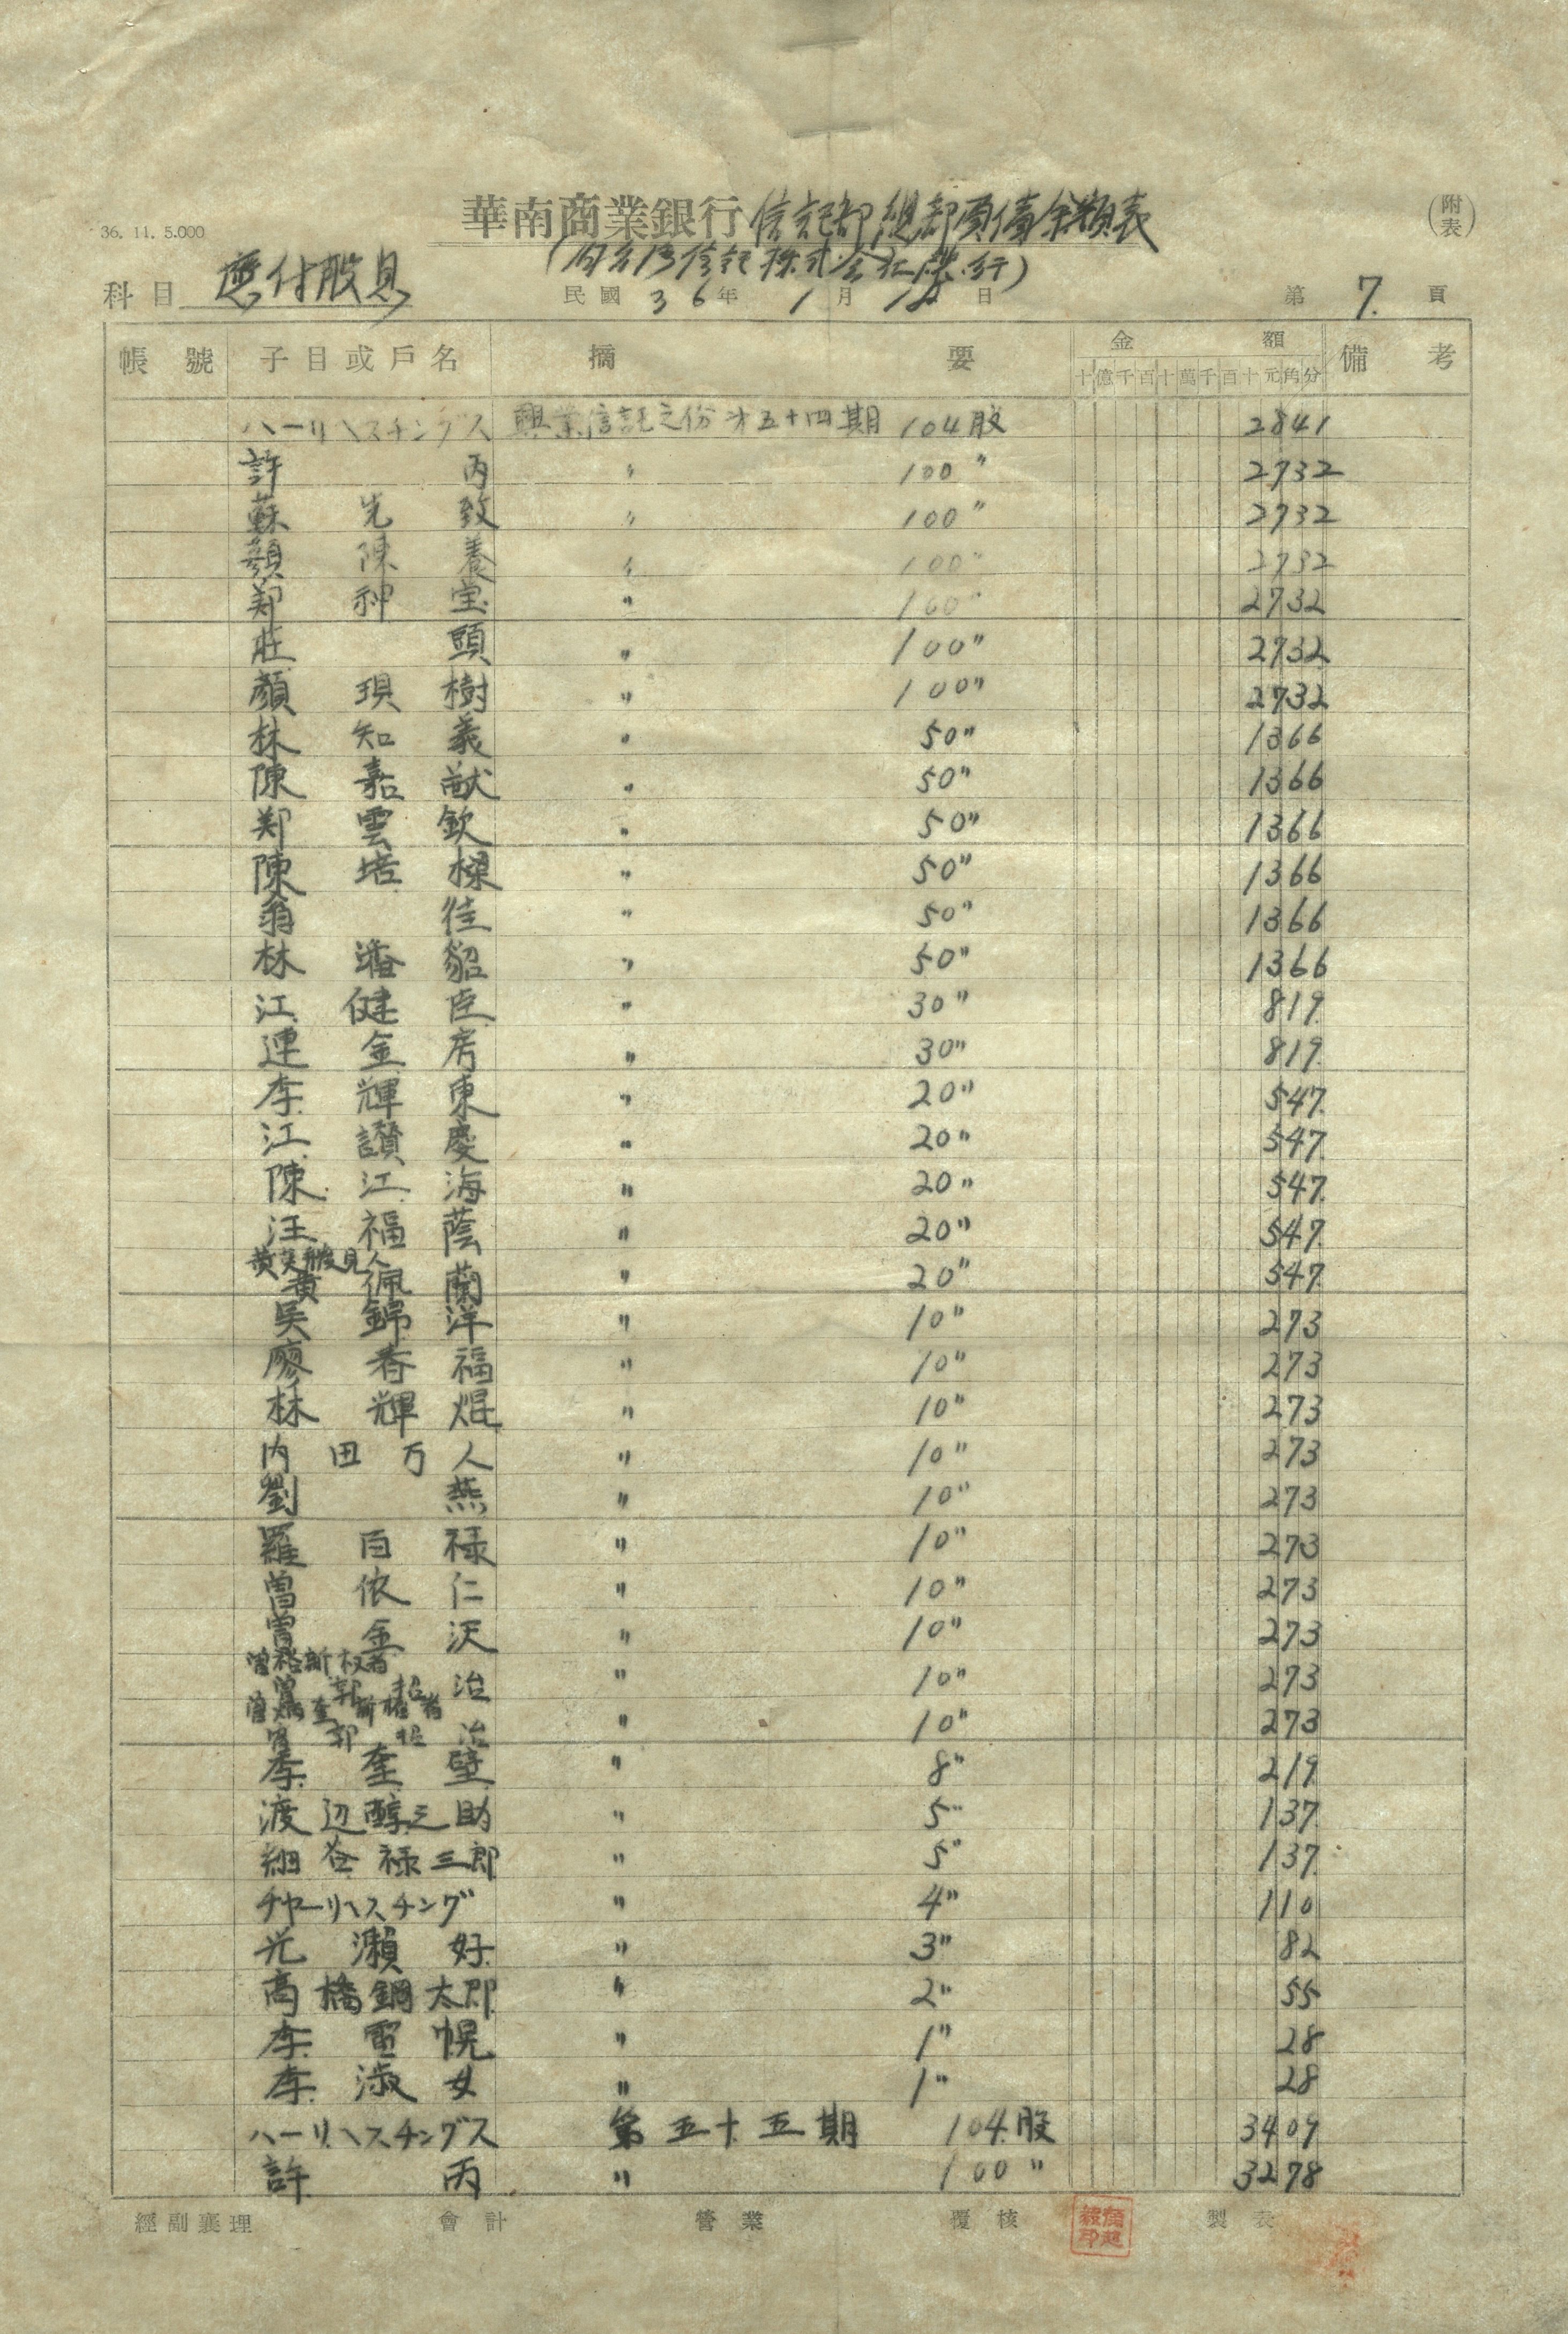 36. 11. 5.000
華南商業銀行信託部總部負債余額表
(附表)
科目 應付股息
民國 36年 1月 日 第 7. 頁
帳號 子目或戶名 摘要 金額 備考
十億千百十萬千百十元角分
ハーリヘスチングス 興業信託之份才五十四期 104股 2841
許丙 〃 100〃 2732
蘇光致 〃 100〃 2732
顏陳養 〃 100〃 2732
郑神宝 〃 100〃 2732
莊頭 〃 100〃 2732
顏現樹 〃 100〃 2732
林知義 〃 50〃 1366
陳嘉猷 〃 50〃 1366
郑雲欽 〃 50〃 1366
陳培樑 〃 50〃 1366
翁徍 〃 50〃 1366
林貂 〃 50〃 1366
江健臣 〃 30〃 819
連金房 〃 30〃 819
李輝東 〃 20〃 547
江讚慶 〃 20〃 547
陳江海 〃 20〃 547
汪福蔭 〃 20〃 547
黃佩蘭 〃 20〃 547
吳錦洋 〃 10〃 273
廖春福 〃 10〃 273
林輝焜 〃 10〃 273
内田万人 〃 10〃 273
劉燕 〃 10〃 273
羅百禄 〃 10〃 273
曾依仁 〃 10〃 273
曾金沢 〃 10〃 273
治 〃 10〃 273
治 〃 10〃 273
李奎壁 〃 8〃 219
渡辺醇三助 〃 5〃 137
細谷禄三郎 〃 5〃 137
チヤーリヘスチング 〃 4〃 110
光瀨好 〃 3〃 82
高橋鋼太郎 〃 2〃 55
李電幌 〃 1〃 28
李淑女 〃 1〃 28
ハーリヘスチングス 第五十五期 104股 3409
許丙 〃 100〃 3278
經副襄理 會計 營業 覆核 製表